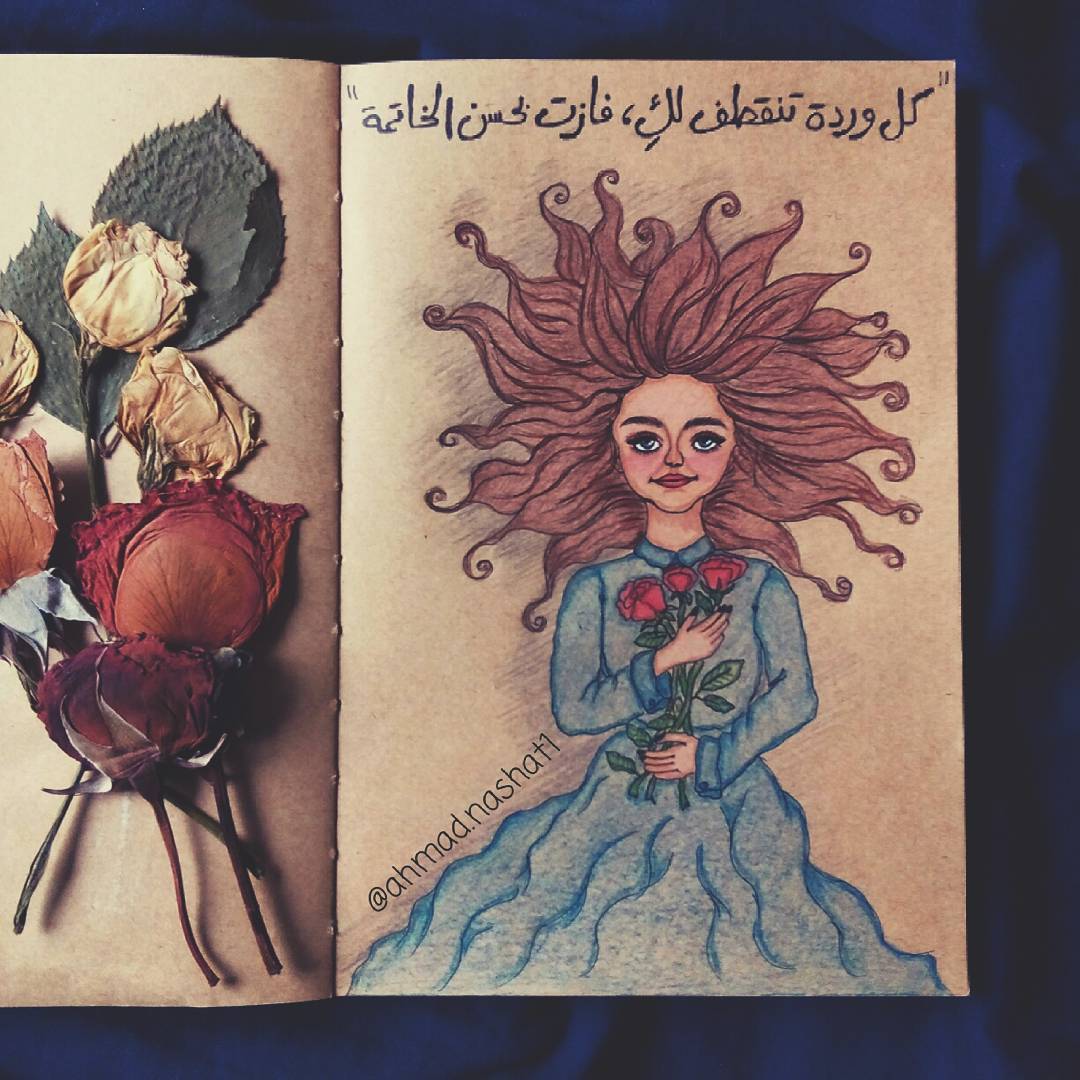 "كل وردة تنقطف لكِ، فازت بحسن الخاتمة"
@ahmad.nashat1